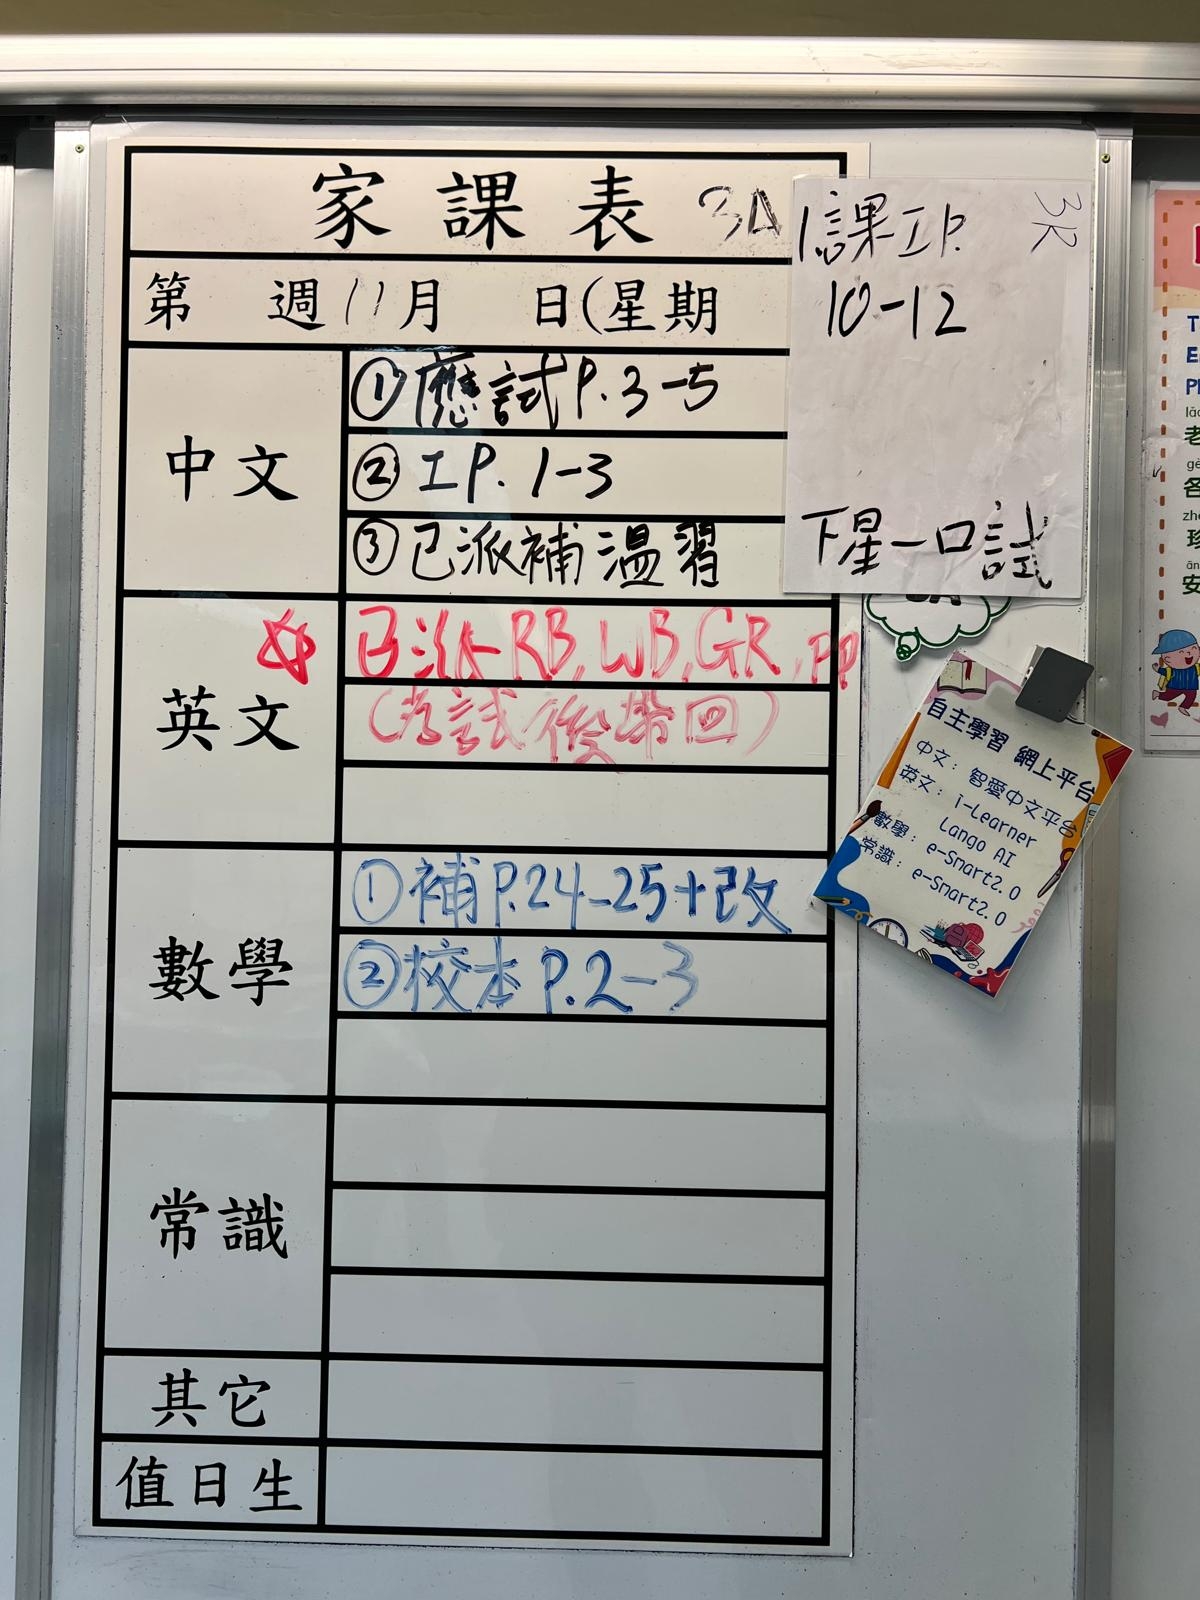 家課表 3A
第 週 11月 日(星期
中文
① 應試 P.3-5
② 工P. 1-3
③ 已派補溫習
英文
☆ 已派 RB, WB, GR, PP
(考試後帶回)
數學
① 補P.24-25+改
② 校本 P.2-3
常識
其它
值日生
1課工P. 3R
10-12
下星一口試
自主學習 網上平台
中文：智愛中文平台
英文：i-Learner
Lango AI
數學：e-Smart2.0
常識：e-Smart2.0
老
各
珍
安